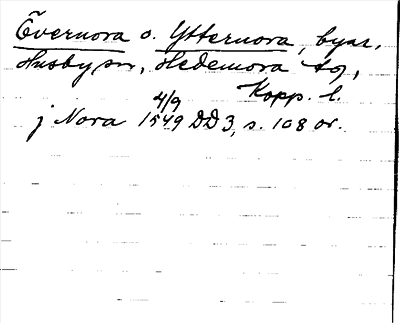 Övernora o. Ytternora, byar,
Husby sn, Hedemora tg,
Kopp. l.
j Nora 1549 4/9 DD 3, s. 108 or.